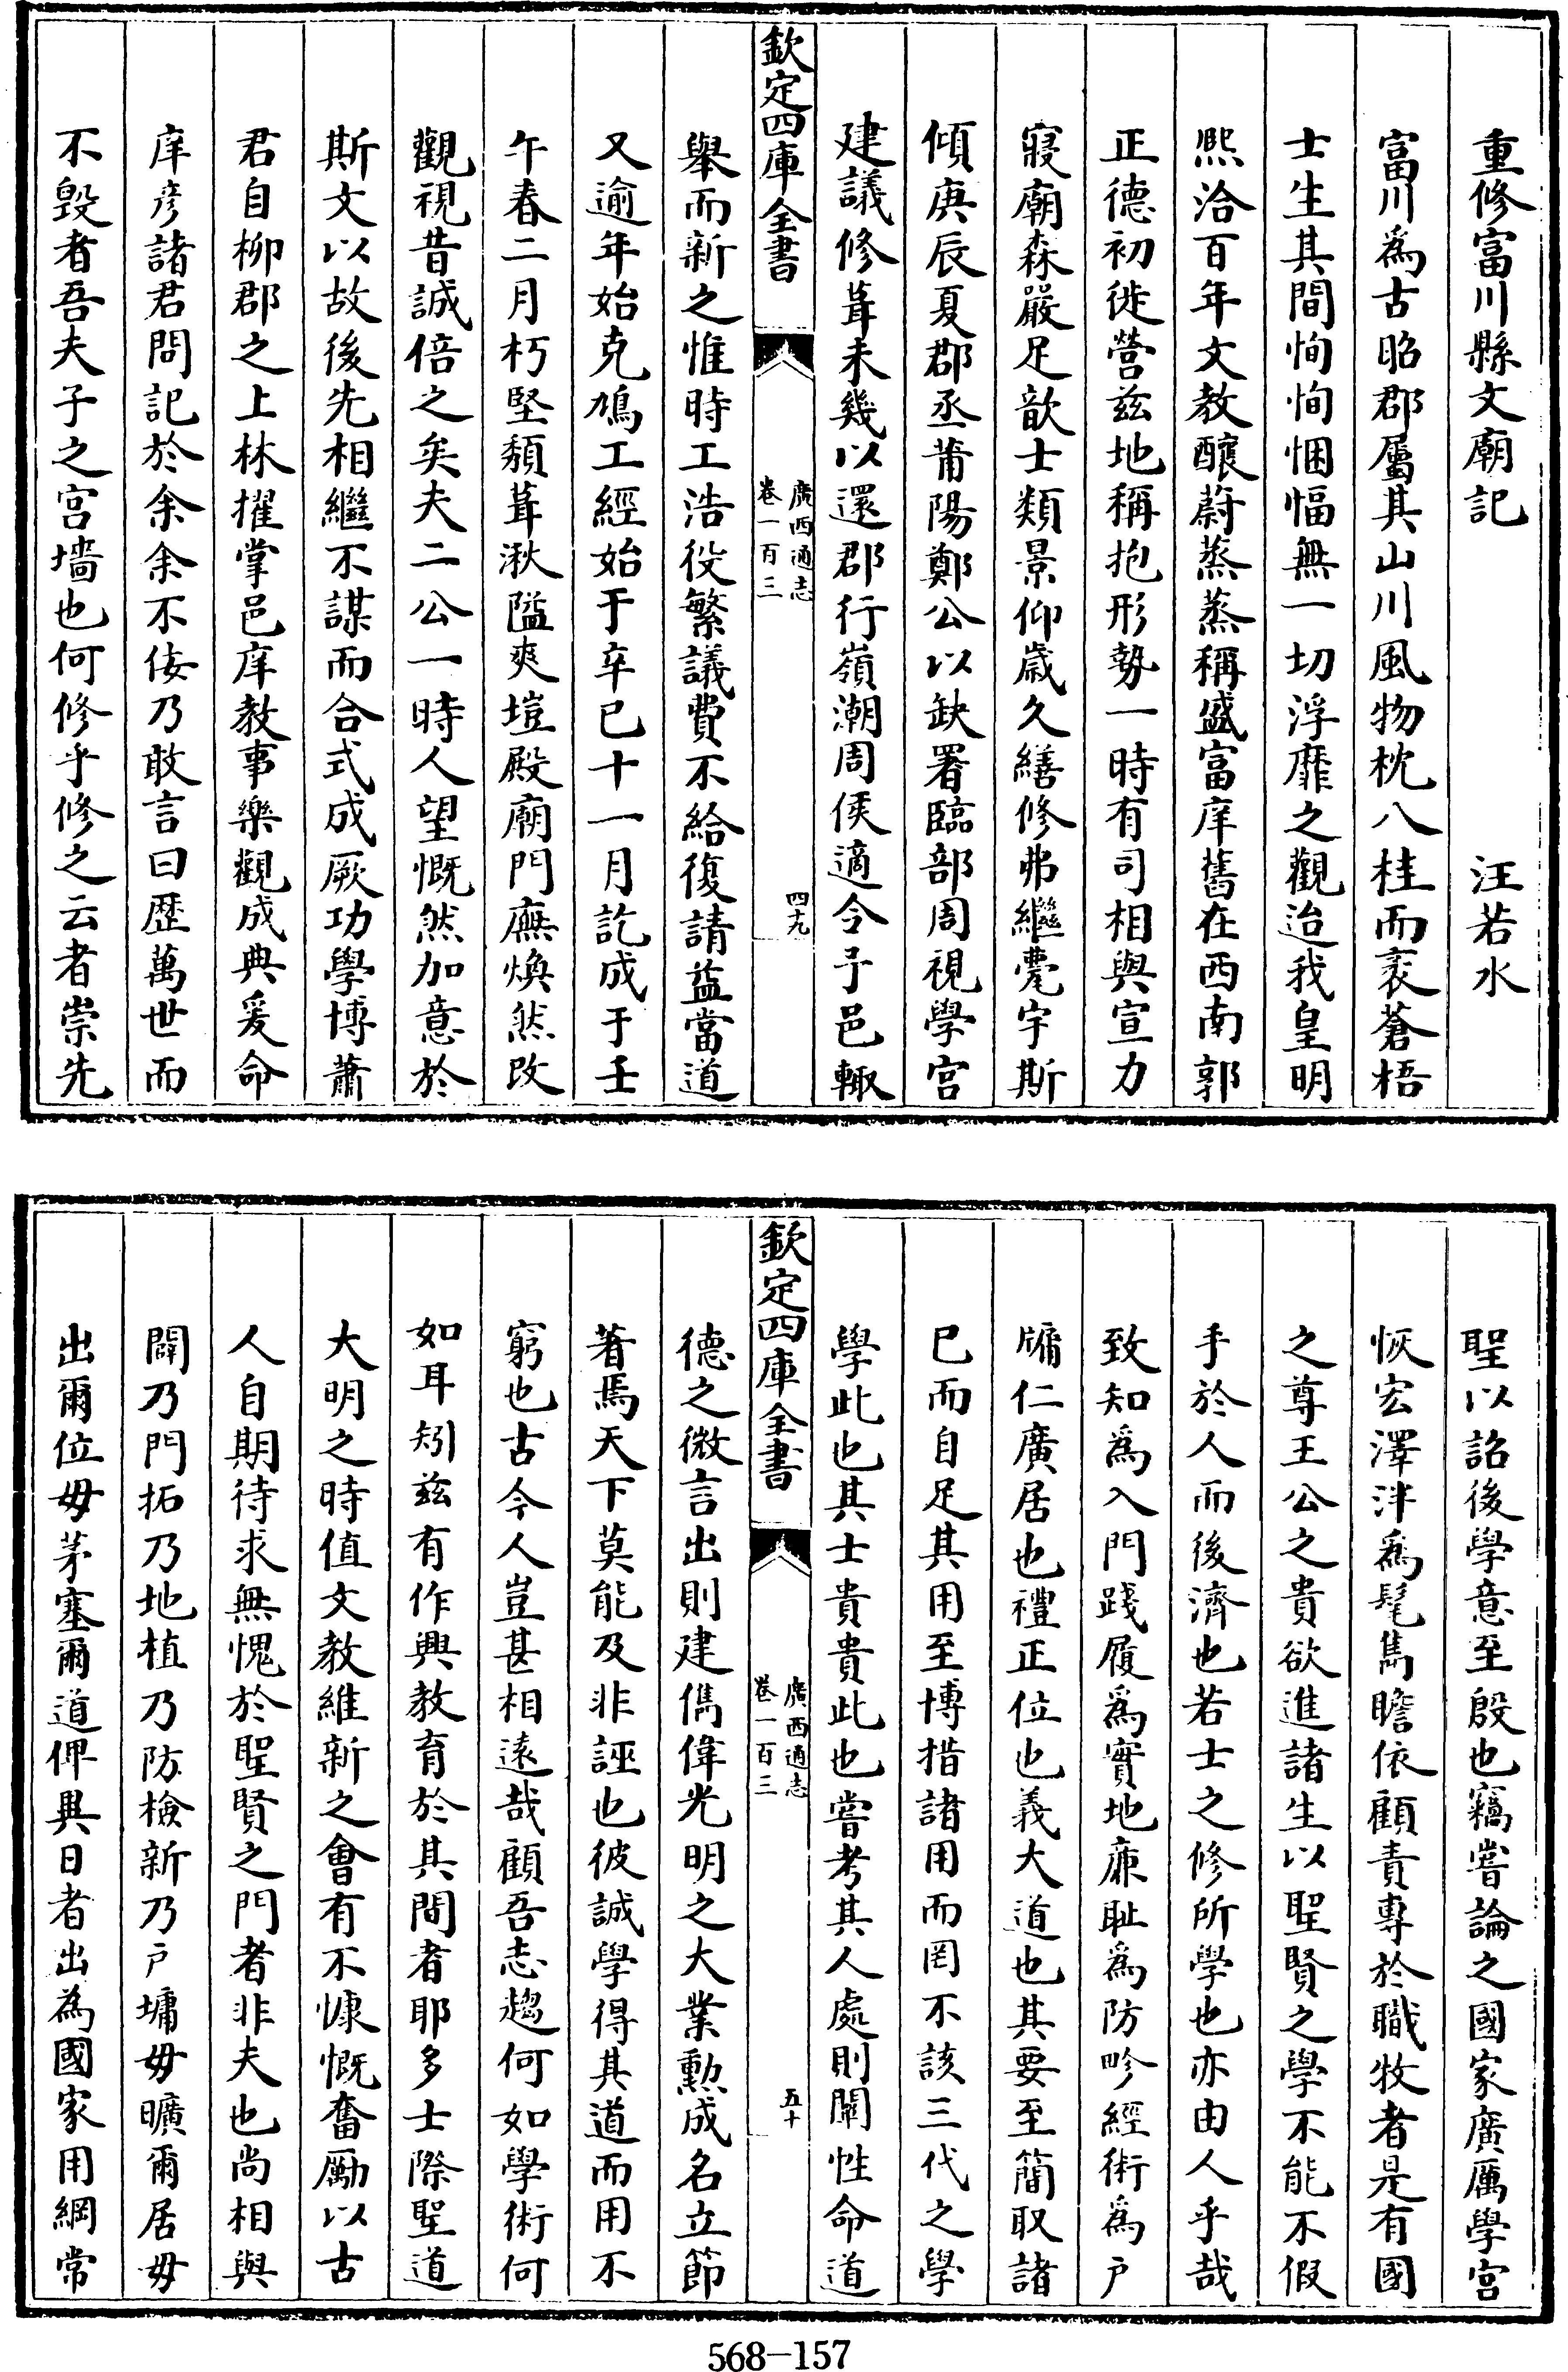 重修富川縣文廟記　汪若水
富川為古昭郡屬其山川風物枕八桂而袤蒼梧
士生其間恂恂悃愊無一切浮靡之觀迨我皇明
熙洽百年文教釀蔚蒸蒸稱盛富庠舊在西南郭
正德初徙營茲地稱抱形勢一時有司相與宣力
寢廟森嚴足歆士類景仰歲久繕修弗繼甍宇斯
傾庚辰夏郡丞莆陽鄭公以缺署臨部周視學宮
建議修葺未幾以還郡行嶺潮周侯適令予邑輙
欽定四庫全書　廣西通志　卷一百三　四十九
舉而新之惟時工浩役繁議費不給復請益當道
又逾年始克鳩工經始于辛巳十一月訖成于壬
午春二月朽堅頹葺湫隘爽塏殿廟門廡煥然改
觀視昔誠倍之矣夫二公一時人望慨然加意於
斯文以故後先相繼不謀而合式成厥功學博蕭
君自柳郡之上林擢掌邑庠教事樂觀成典爰命
庠彦諸君問記於余余不佞乃敢言曰歴萬世而
不毀者吾夫子之宮墻也何修乎修之云者崇先
聖以詔後學意至殷也竊嘗論之國家廣厲學宮
恢宏澤泮為髦雋瞻依顧責專於職牧者是有國
之尊王公之貴欲進諸生以聖賢之學不能不假
手於人而後濟也若士之修所學也亦由人乎哉
致知為入門踐履為實地亷耻為防畛經術為戶
牖仁廣居也禮正位也義大道也其要至簡取諸
已而自足其用至博措諸用而罔不該三代之學
學此也其士貴貴此也嘗考其人處則闡性命道
欽定四庫全書　廣西通志　卷一百三　五十
德之微言出則建儁偉光明之大業勲成名立節
著焉天下莫能及非誣也彼誠學得其道而用不
窮也古今人豈甚相遠哉顧吾志趨何如學術何
如耳矧茲有作興教育於其間者耶多士際聖道
大明之時值文教維新之會有不慷慨奮勵以古
人自期待求無愧於聖賢之門者非夫也尚相與
闢乃門拓乃地植乃防檢新乃戶墉毋曠爾居毋
出爾位毋茅塞爾道俾異日者出為國家用綱常
568-157